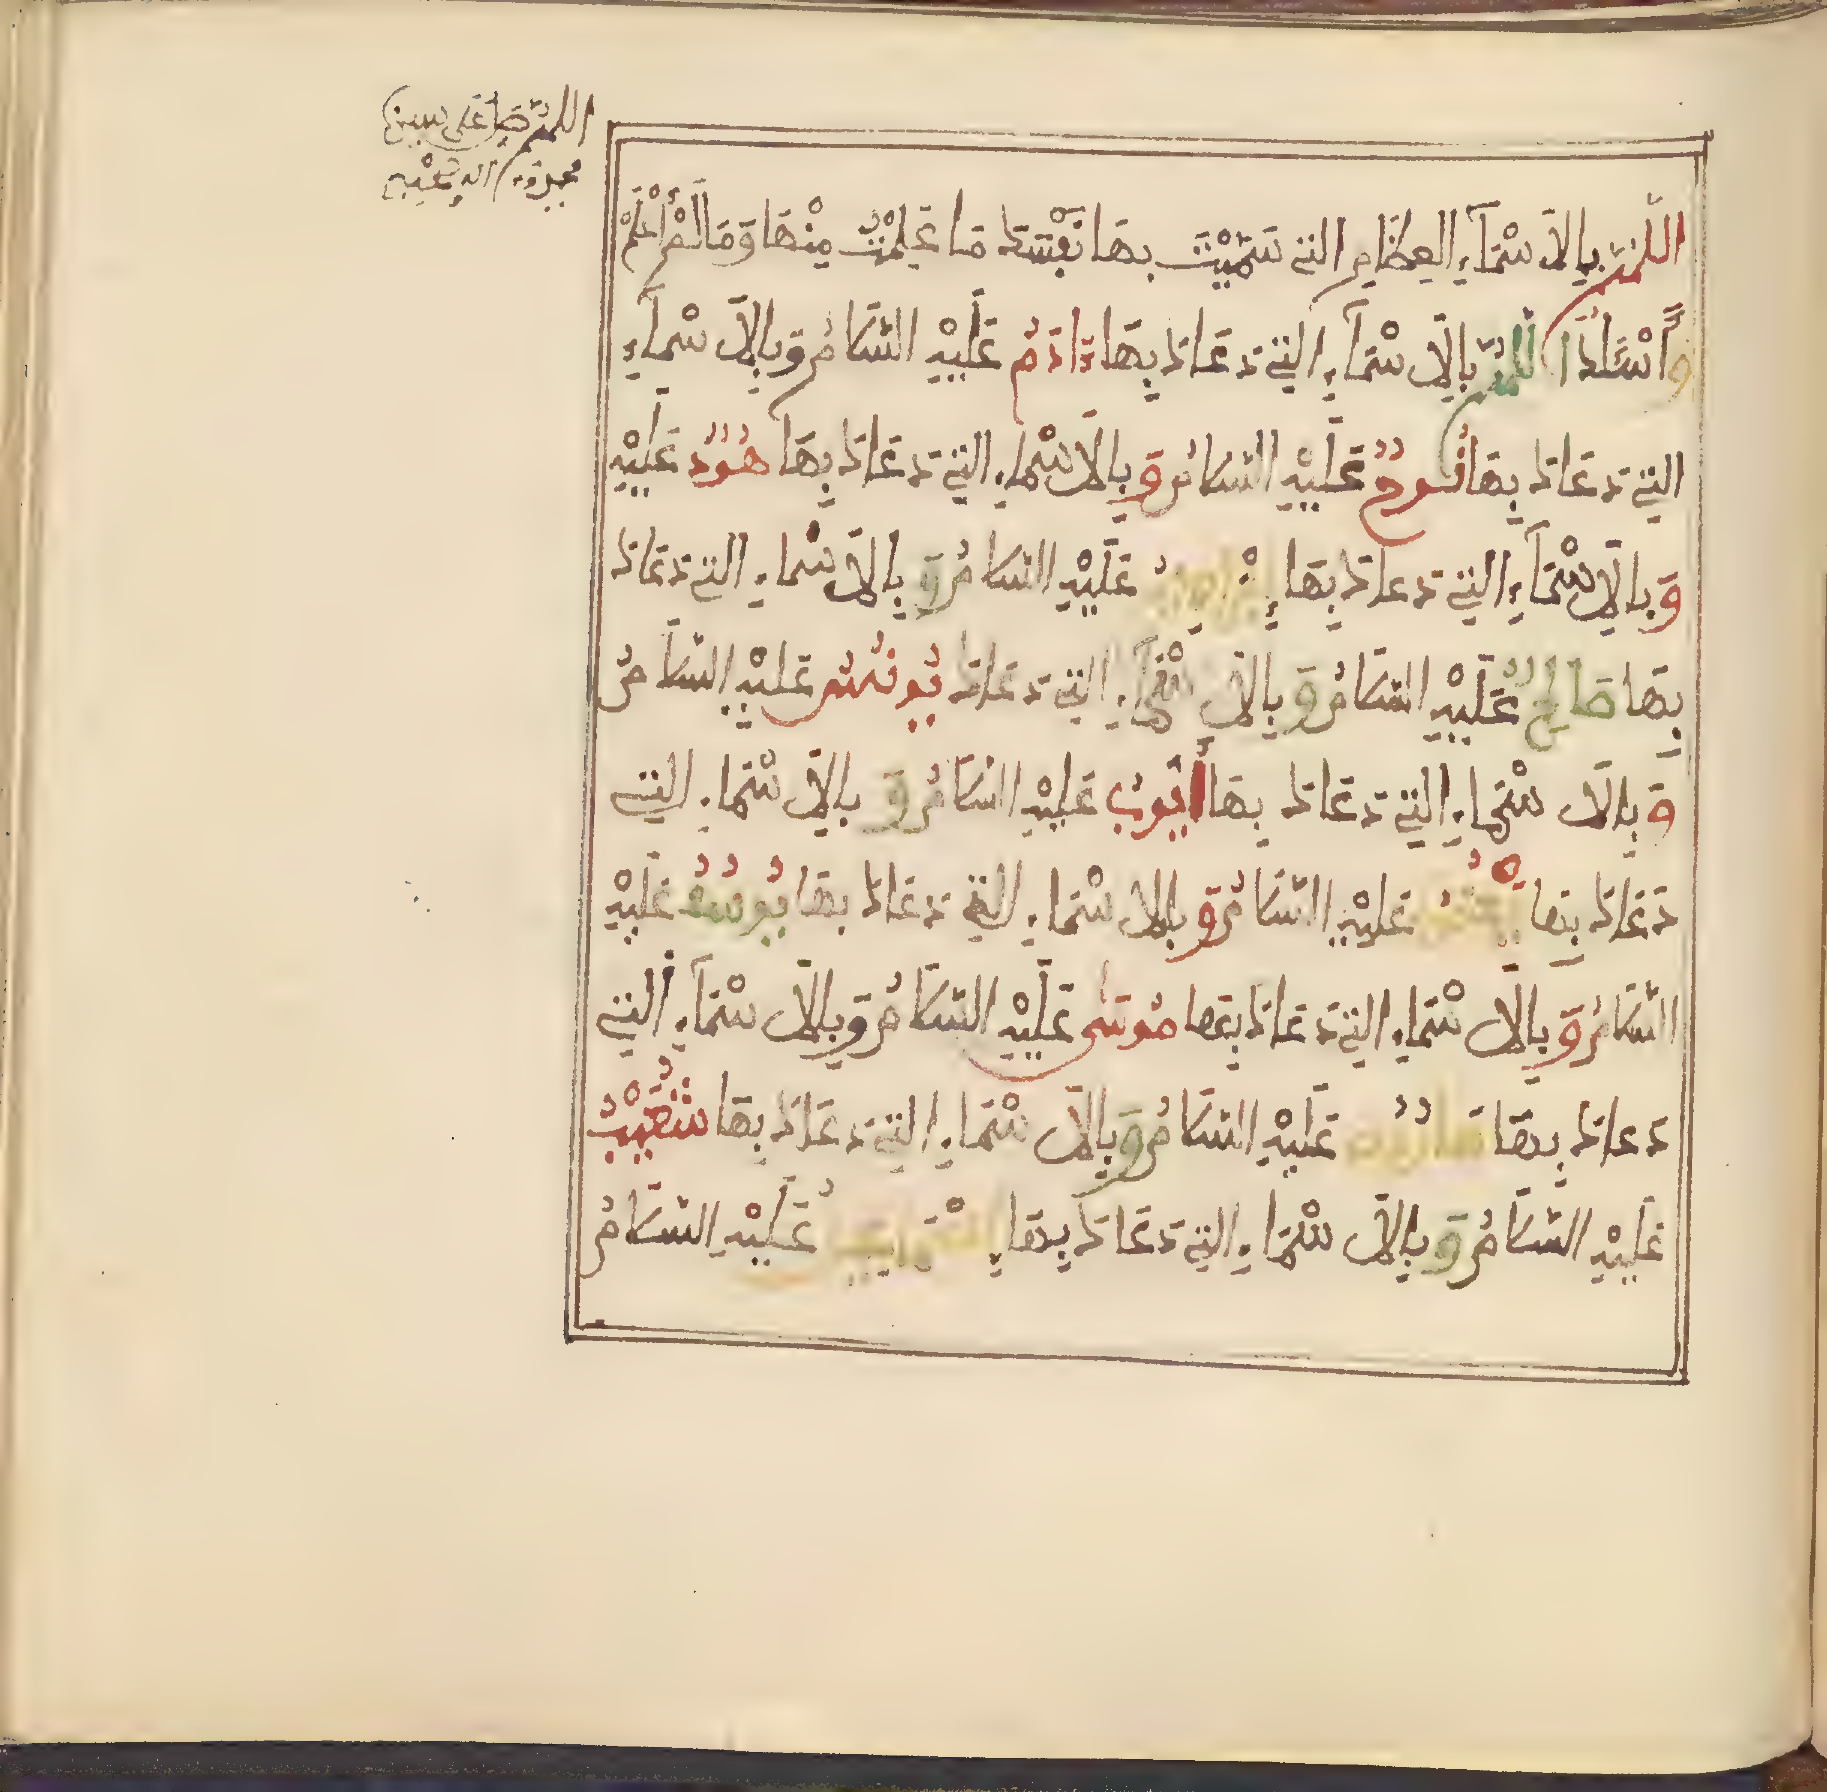 اللهم صل على سيدنا
محمد وءاله وصحبه
اللَّهُمَّ بِالاَسْمَآءِ العِظَامِ التِي سَمَّيْتَ بِهَا نَفْسَكَ مَا عَلِمْتُ مِنْهَا وَمَا لَمْ أَعْلَمْ
وَأَسْأَلُكَ اللَّهُمَّ بِالاَسْمَآءِ التِي دَعَاكَ بِهَا ءَادَمُ عَلَيْهِ السَّلَامُ وَبِالاَسْمَآءِ
التِي دَعَاكَ بِهَا نُوحٌ عَلَيْهِ السَّلَامُ وَبِالاَسْمَاءِ التِي دَعَاكَ بِهَا هُودٌ عَلَيْهِ
وَبِالاَسْمَآءِ التِي دَعَاكَ بِهَا إِبْرَاهِيمُ عَلَيْهِ السَّلَامُ وَبِالاَسْمَاءِ التِي دَعَاكَ
بِهَا صَالِحٌ عَلَيْهِ السَّلَامُ وَبِالاَسْمَآءِ التِي دَعَاكَ يُونُسُ عَلَيْهِ السَّلَامُ
وَبِالاَسْمَاءِ التِي دَعَاكَ بِهَا أَيُّوبُ عَلَيْهِ السَّلَامُ وَبِالاَسْمَاءِ التِي
دَعَاكَ بِهَا يَعْقُوبُ عَلَيْهِ السَّلَامُ وَبِالاَسْمَاءِ التِي دَعَاكَ بِهَا يُوسُفُ عَلَيْهِ
السَّلَامُ وَبِالاَسْمَاءِ التِي دَعَاكَ بِهَا مُوسَى عَلَيْهِ السَّلَامُ وَبِالاَسْمَآءِ التِي
دَعَاكَ بِهَا هَارُونُ عَلَيْهِ السَّلَامُ وَبِالاَسْمَاءِ التِي دَعَاكَ بِهَا شُعَيْبٌ
عَلَيْهِ السَّلَامُ وَبِالاَسْمَاءِ التِي دَعَاكَ بِهَا إِسْمَاعِيلُ عَلَيْهِ السَّلَامُ